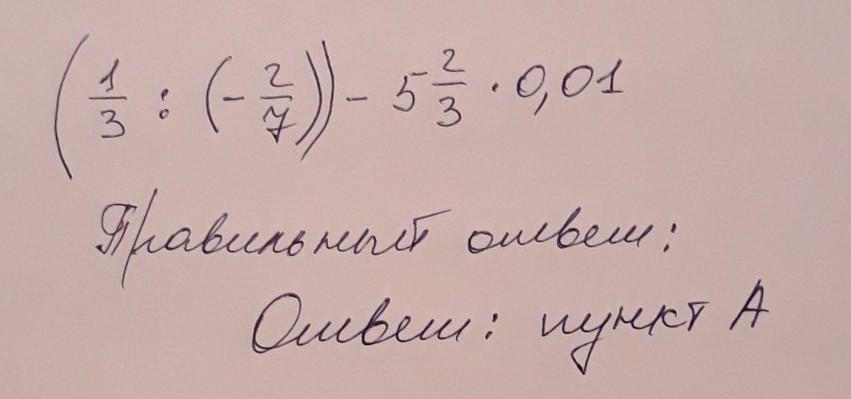 (1/3 : (-2/7)) - 5 2/3 · 0,01
Правильный ответ:
Ответ: пункт А